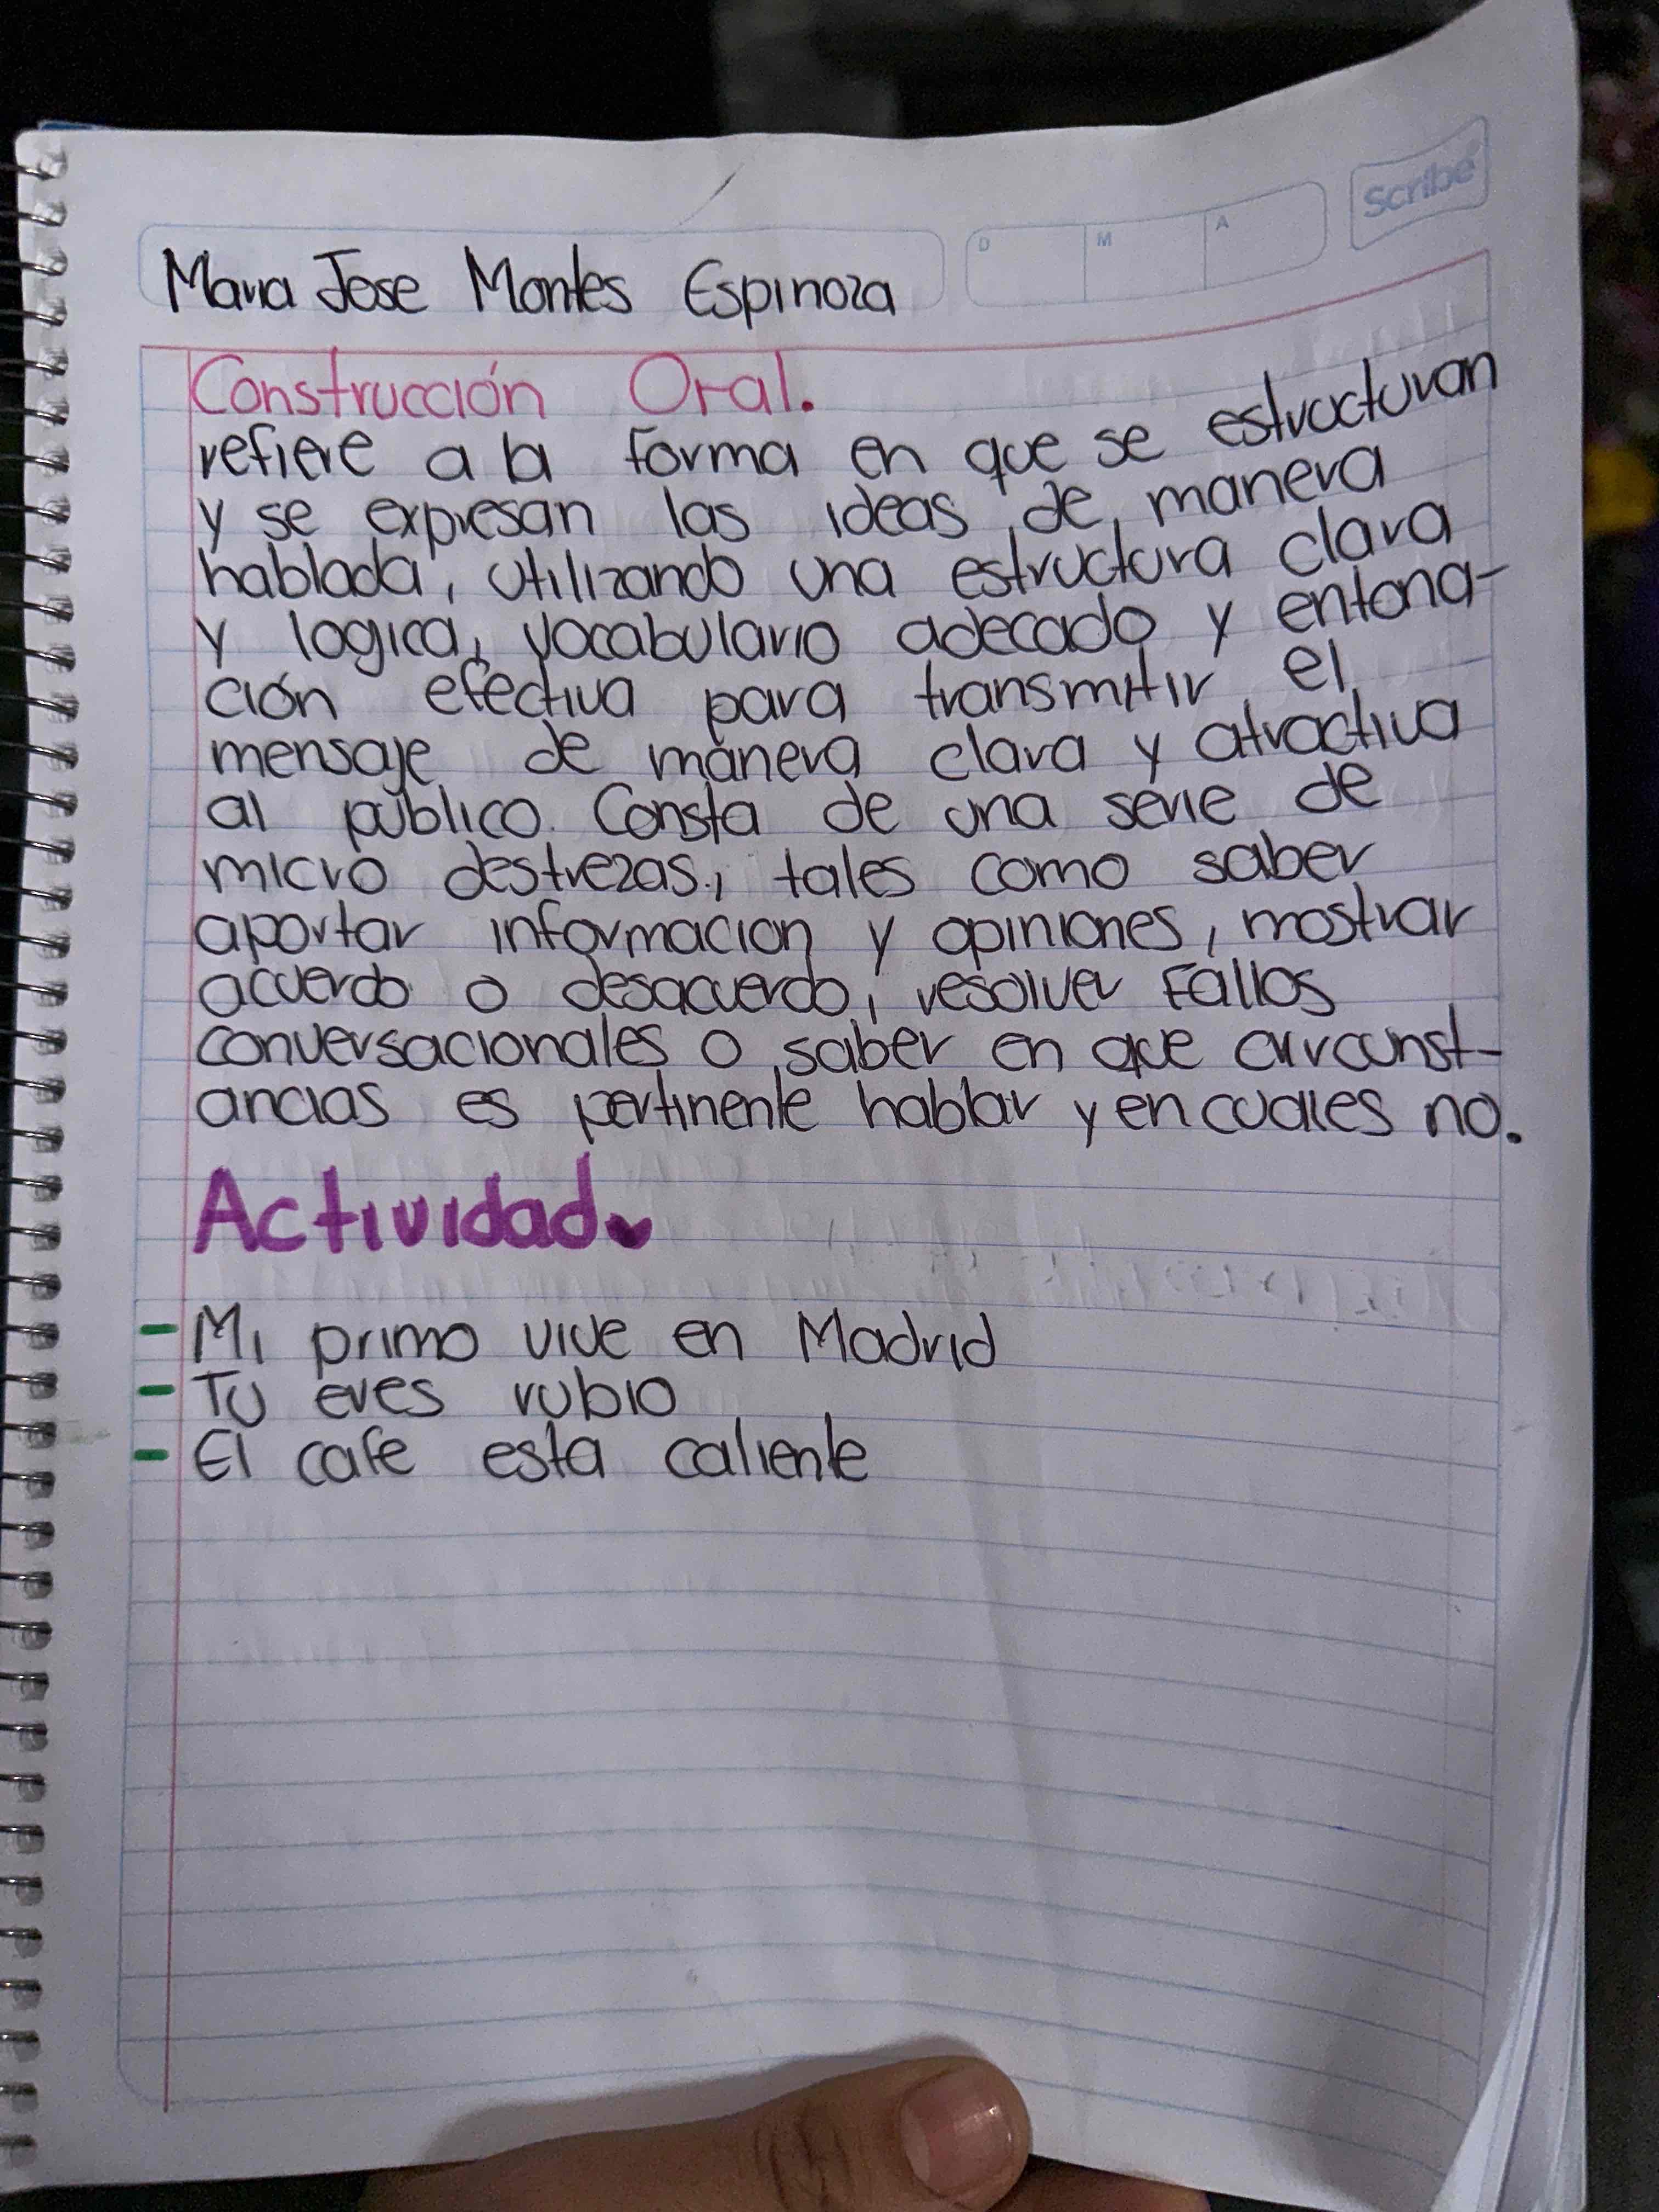 Scribe
D M A
Maria Jose Montes Espinoza
Construcción Oral.
refiere a la forma en que se estructuran
y se expresan las ideas de manera
hablada, utilizando una estructura clara
y logica, vocabulario adecado y entona-
ción efectiva para transmitir el
mensaje de manera clara y atractiva
al público. Consta de una serie de
micro destrezas, tales como saber
aportar informacion y opiniones, mostrar
acuerdo o desacuerdo, resolver Fallos
conversacionales o saber en que circunst-
ancias es pertinente hablar y en cuales no.
Actividad
- Mi primo vive en Madrid
- Tu eres rubio
- El cafe esta caliente